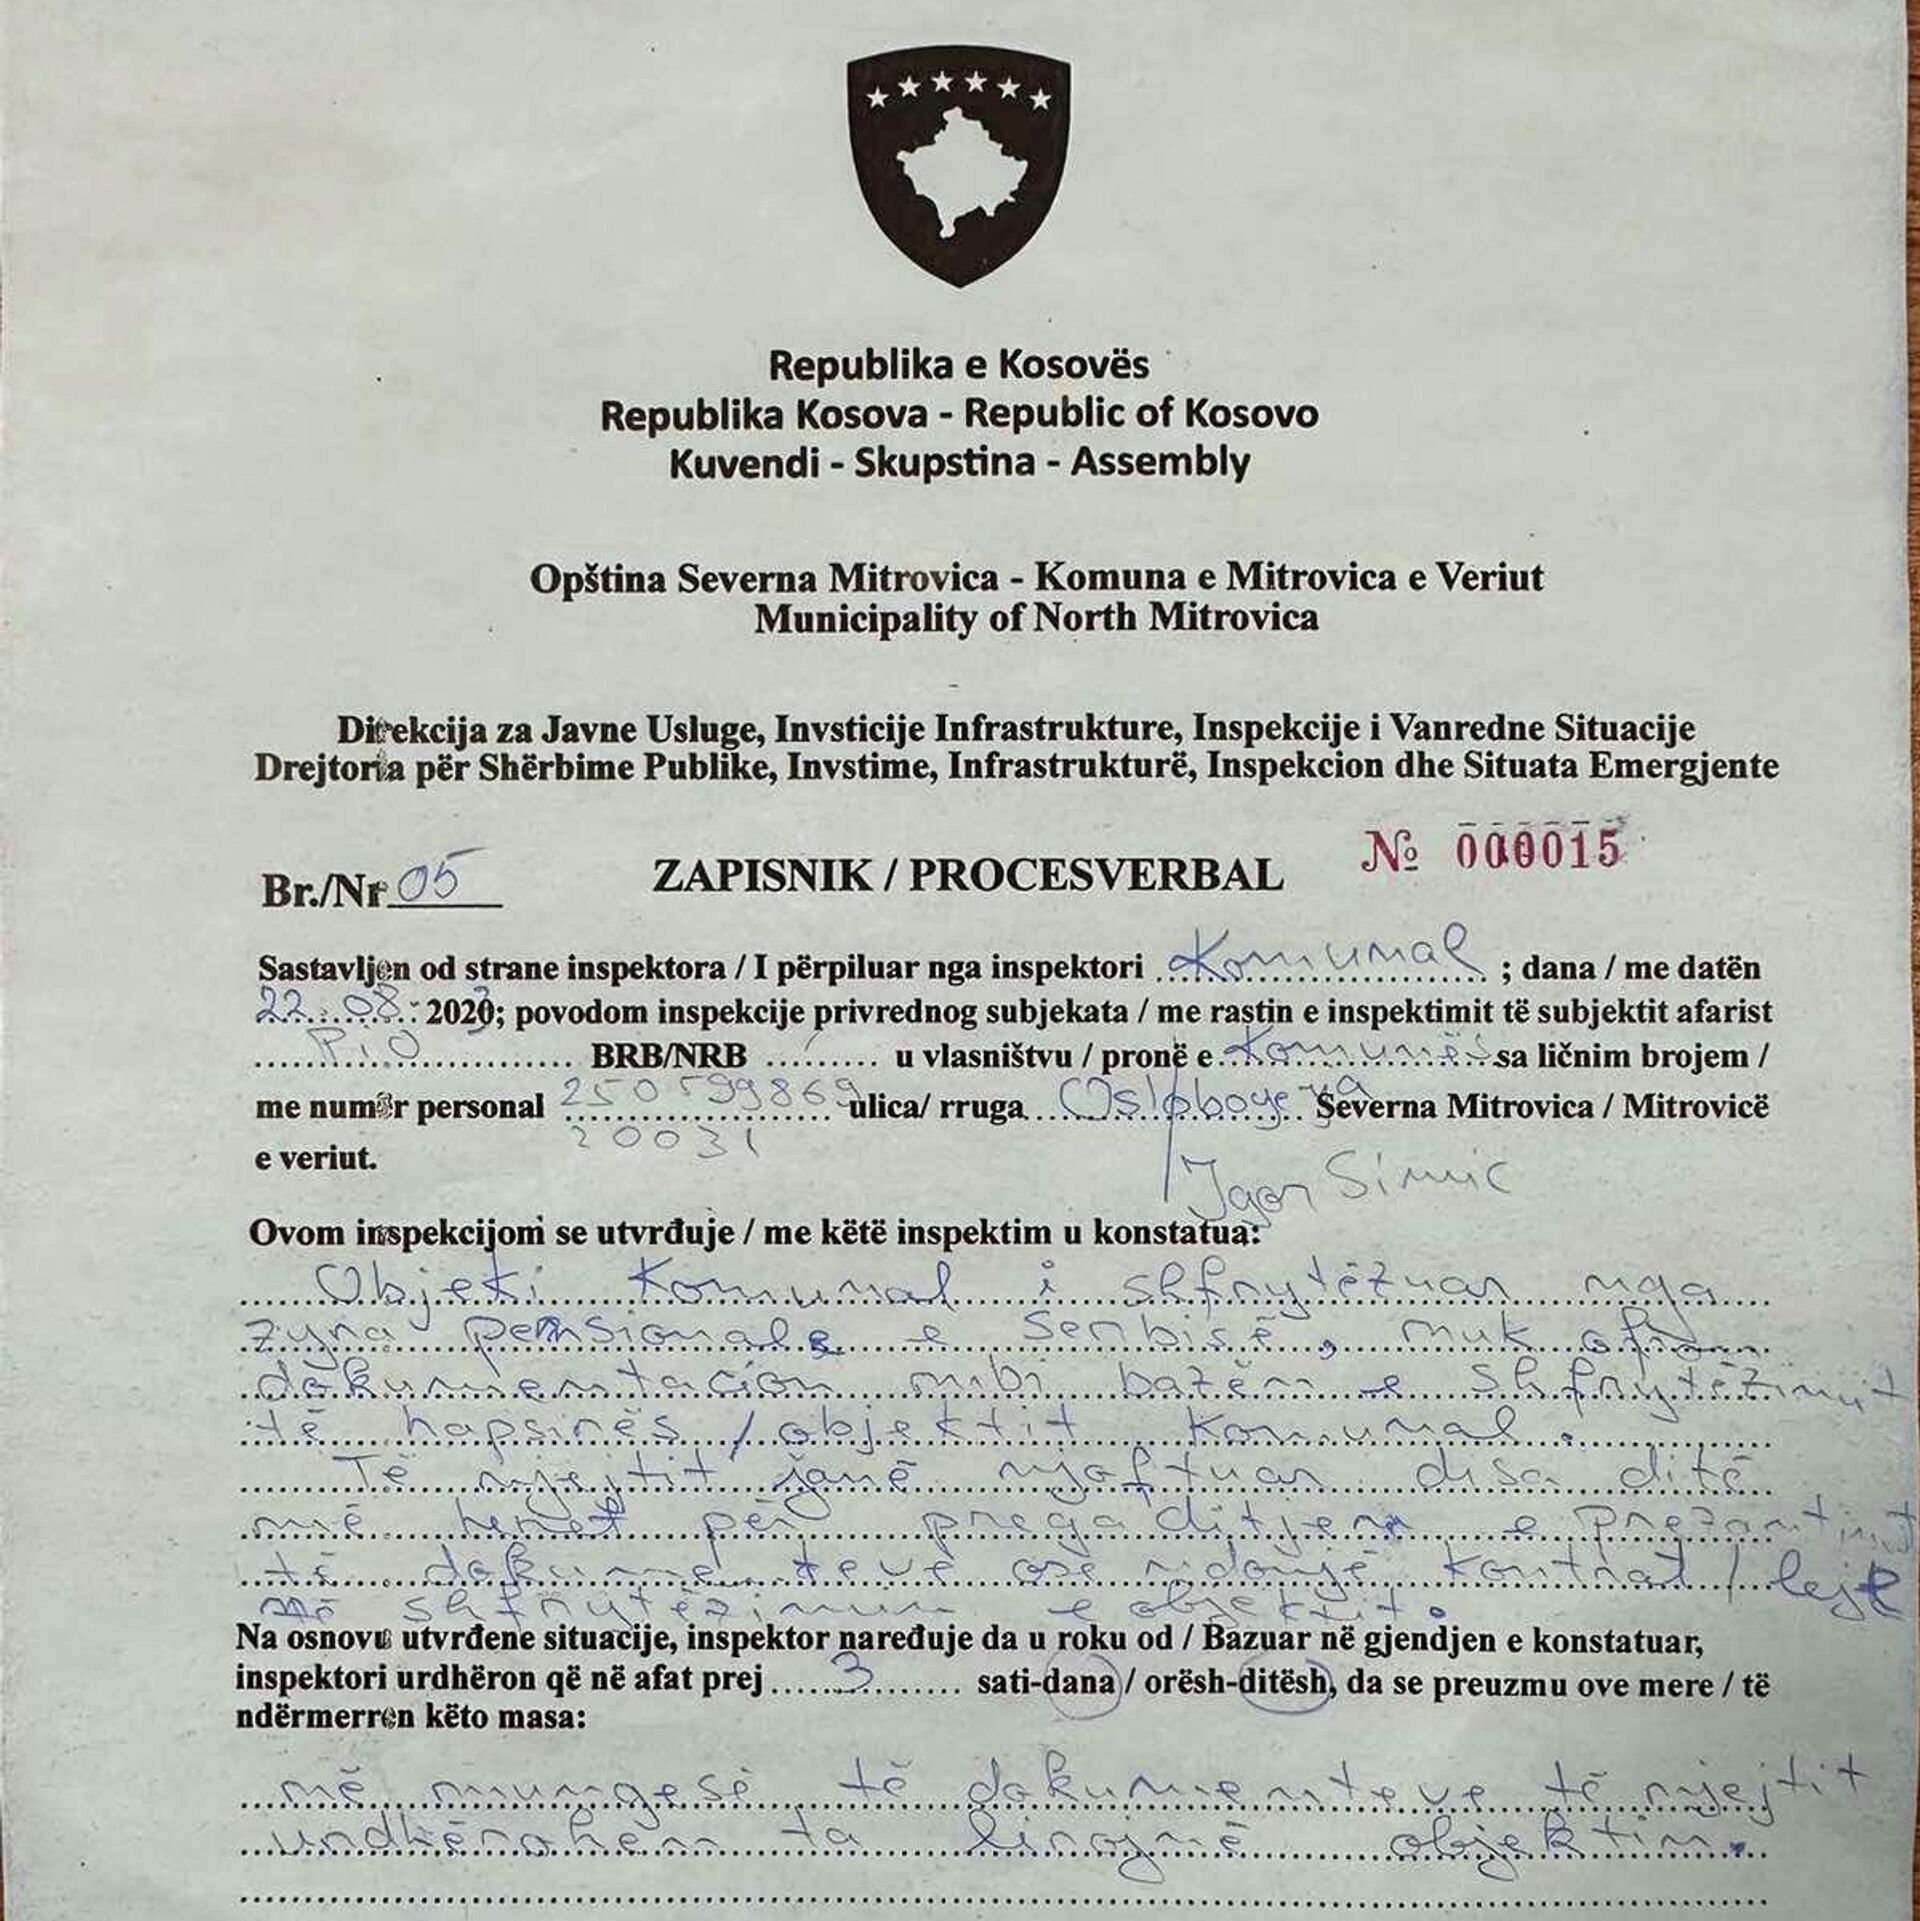 Republika e Kosovës
Republika Kosova - Republic of Kosovo
Kuvendi - Skupstina - Assembly
Opština Severna Mitrovica - Komuna e Mitrovica e Veriut
Municipality of North Mitrovica
Direkcija za Javne Usluge, Invsticije Infrastrukture, Inspekcije i Vanredne Situacije
Drejtoria për Shërbime Publike, Invstime, Infrastrukturë, Inspekcion dhe Situata Emergjente
Br./Nr 05 ZAPISNIK / PROCESVERBAL № 000015
Sastavljen od strane inspektora / I përpiluar nga inspektori Komunal ; dana / me datën
22.08. 2023; povodom inspekcije privrednog subjekata / me rastin e inspektimit të subjektit afarist
PiO BRB/NRB / u vlasništvu / pronë e Komunës sa ličnim brojem /
me numër personal 250599869 ulica/ rruga Severna Mitrovica / Mitrovicë
20031
e veriut. Igor Simic
Ovom inspekcijom se utvrđuje / me këtë inspektim u konstatua:
Objekti Komunal i shfrytëzuar nga
zyra pensionale e Serbisë, nuk ofron
dokumentacion mbi bazën e shfrytëzimit
të hapsirës / objektit Komunal.
Të njejtit janë njoftuar disa ditë
më heret për pregaditjen e prezantimit
të dokumenteve ose ndonjë kontrat / leje
në shfrytëzimin e objektit.
Na osnovu utvrđene situacije, inspektor naređuje da u roku od / Bazuar në gjendjen e konstatuar,
inspektori urdhëron që në afat prej 3 sati-dana / orësh-ditësh, da se preuzmu ove mere / të
ndërmerren këto masa:
në mungesë të dokumenteve të njejtit
urdhërohen ta lirojnë objektin.